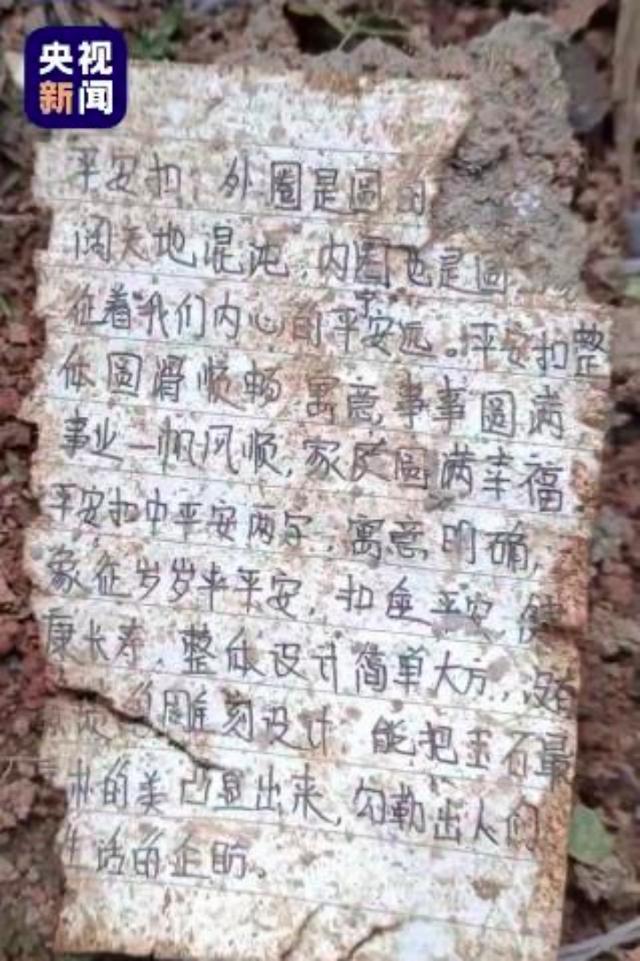 央视
新闻
平安扣，外圈是圆的
阔天地混沌，内圈也是圆
征着我们内心的平安宁远。平安扣整
体圆滑顺畅，寓意事事圆满，
事业一帆风顺，家庭圆满幸福。
平安扣中平安两字，寓意明确，
象征岁岁年平安，扣全平安，健
康长寿。整体设计简单大方，没有
雕刻设计，能把玉石最
的美凸显出来，勾勒出人们
生活的企盼。